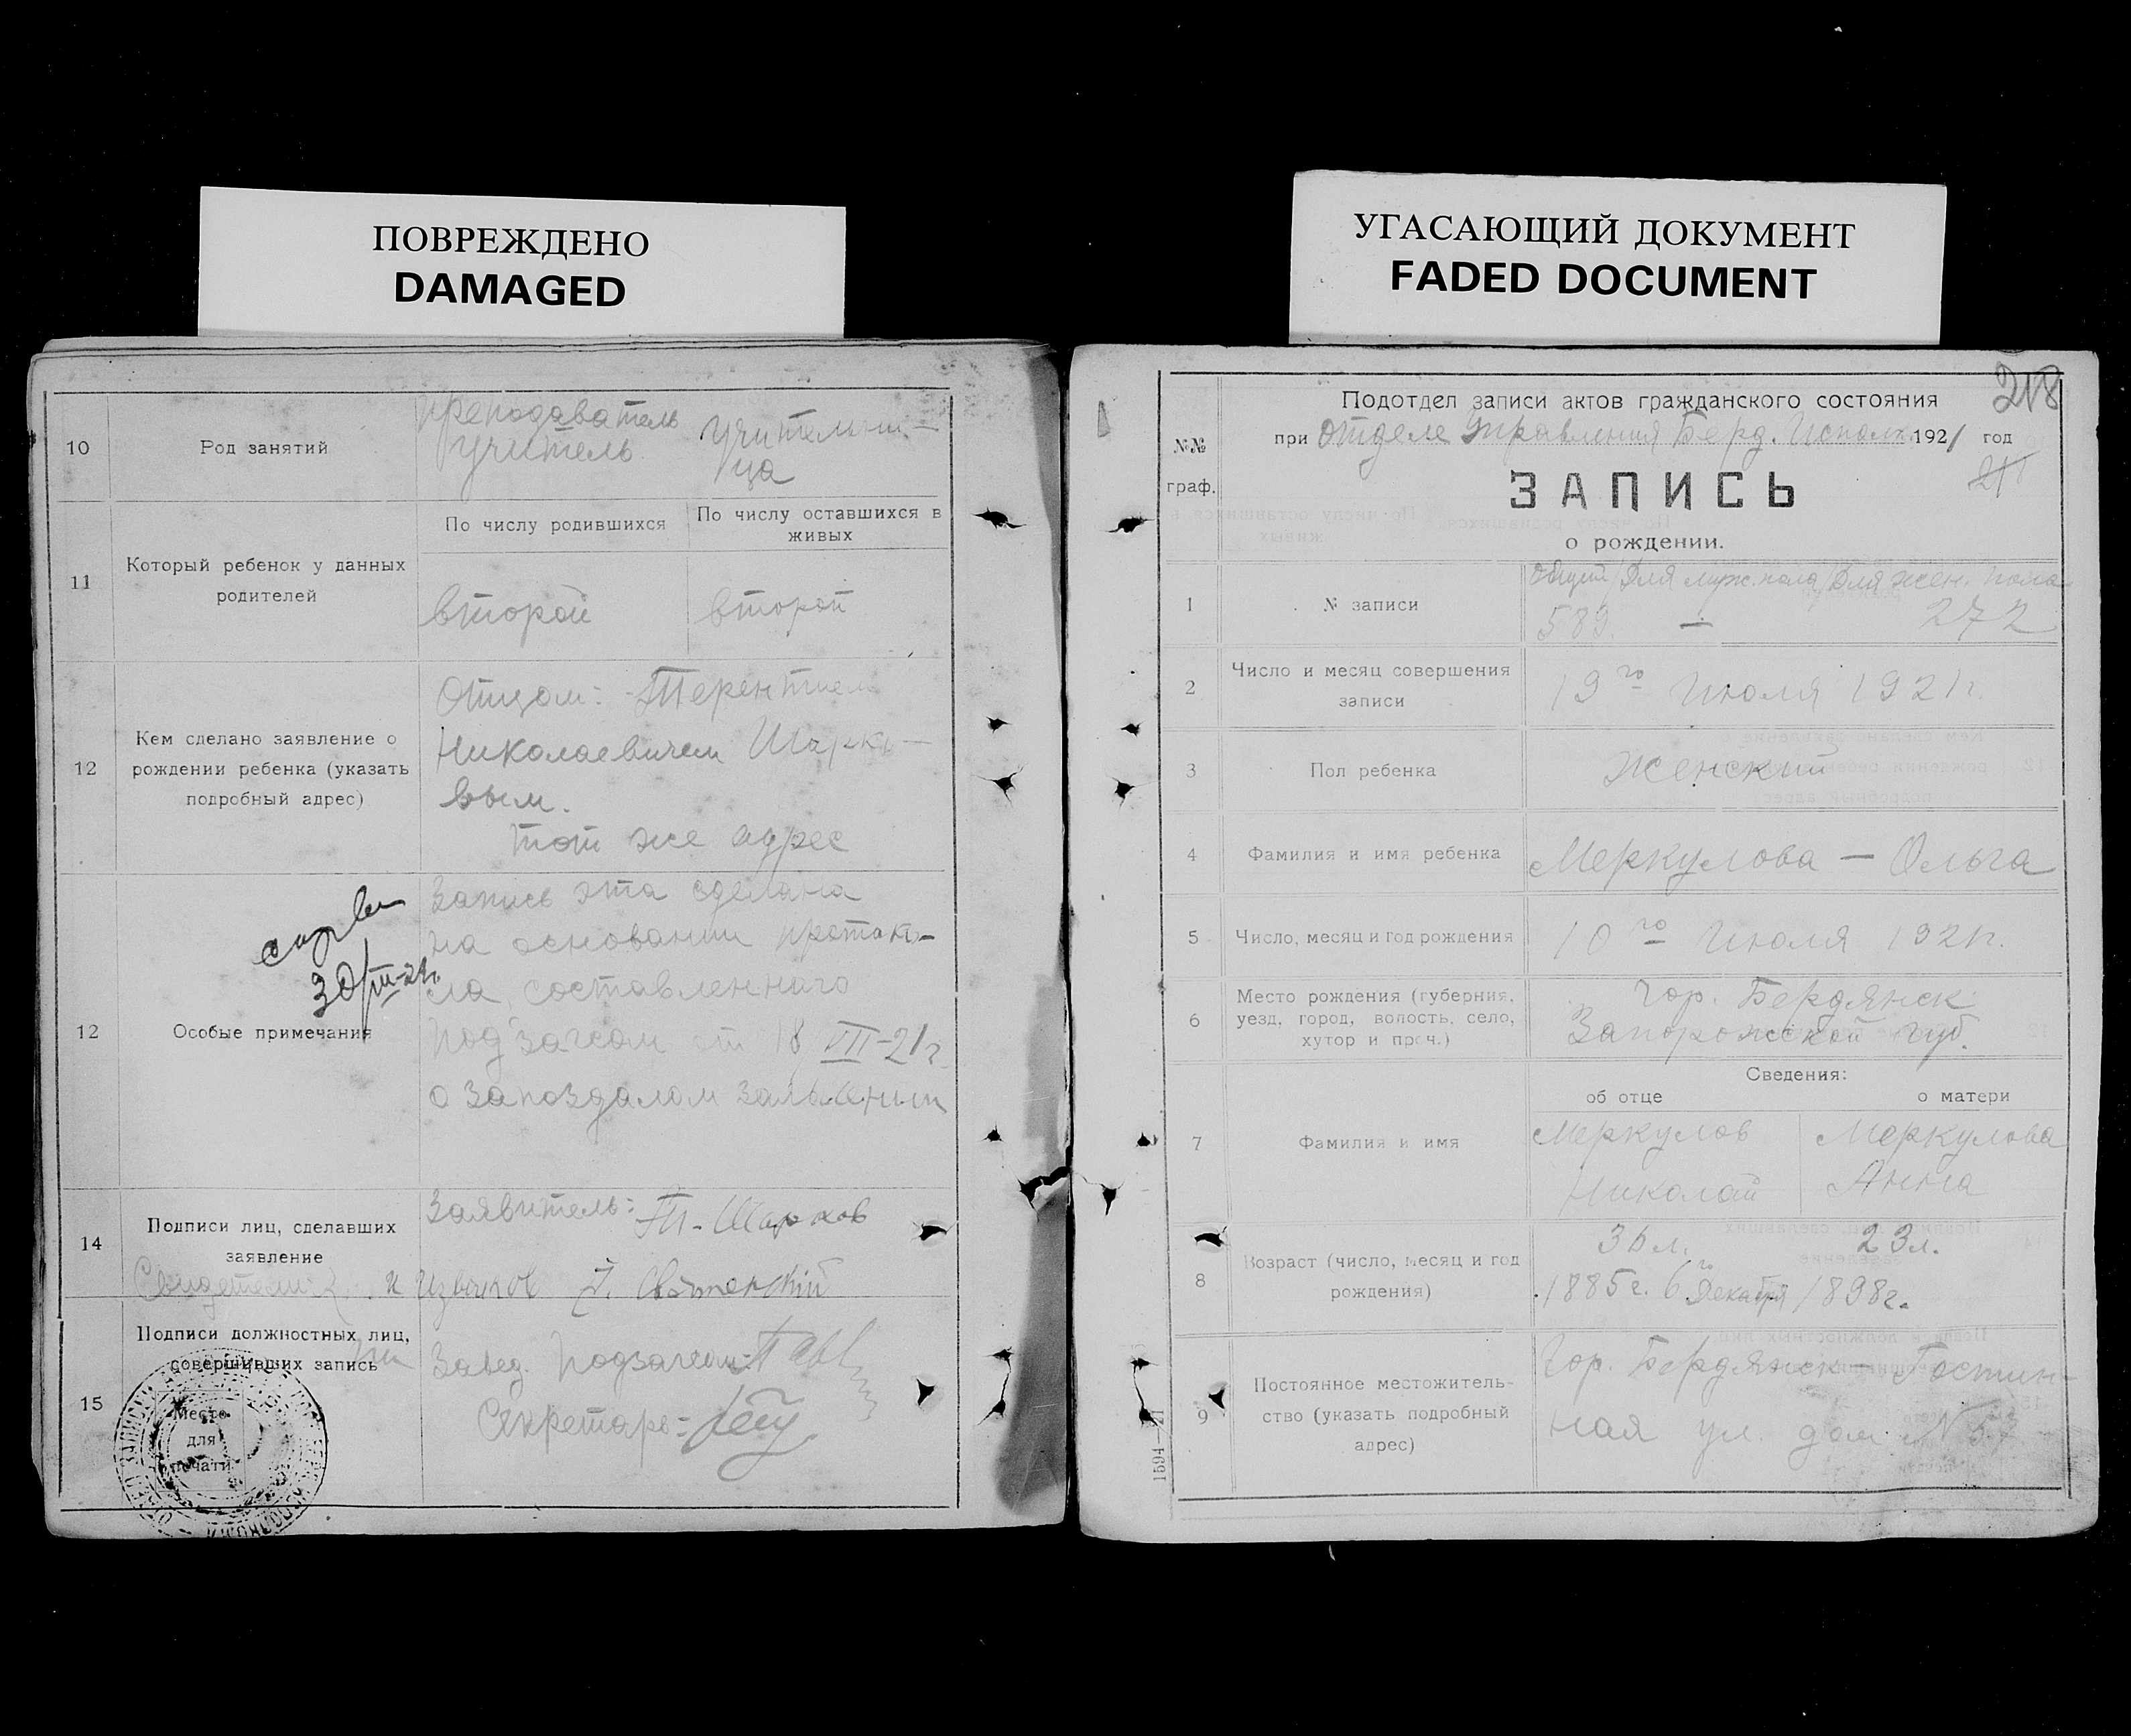 ПОВРЕЖДЕНО
DAMAGED
10
Род занятий
преподаватель
учитель
Учительни-
ца
11
Который ребенок у данных
родителей
По числу родившихся
По числу оставшихся в
живых
второй
второй
12
Кем сделано заявление о
рождении ребенка (указать
подробный адрес)
Отцом: Терентием
Николаевичем Шарко-
вым.
тот же адрес
12
Особые примечания
30/III-21г.
Запись эта сделана
на основании проток-
ла составленного
Подзагсом от 18 VII-21г
о запоздалом заявлении
14
Подписи лиц, сделавших
заявление
Заявитель: Т. Шарков
Свидетели:
15
Подписи должностных лиц,
совершивших запись
Завед. Подзагсом
Секретарь-
Место
для
печати
УГАСАЮЩИЙ ДОКУМЕНТ
FADED DOCUMENT
218
№№
граф.
Подотдел записи актов гражданского состояния
при Отделе Управления Берд. Исполк. 1921 год
ЗАПИСЬ
о рождении.
1
№ записи
Общий/Для муж. пола/Для жен. пола
589. — 272
2
Число и месяц совершения
записи
19го Июля 1921г.
3
Пол ребенка
Женский
4
Фамилия и имя ребенка
Меркулова — Ольга
5
Число, месяц и год рождения
10го Июля 1921г.
6
Место рождения (губерния,
уезд, город, волость, село,
хутор и проч.)
Гор. Бердянск
Запорожской губ.
Сведения:
об отце
о матери
7
Фамилия и имя
Меркулов
Николай
Меркулова
Анна
8
Возраст (число, месяц и год
рождения)
36л.
1885г. 6го Декабря
23л.
1898г.
9
Постоянное местожитель-
ство (указать подробный
адрес)
Гор. Бердянск Гостин-
ная ул. дом № 57
1594—21